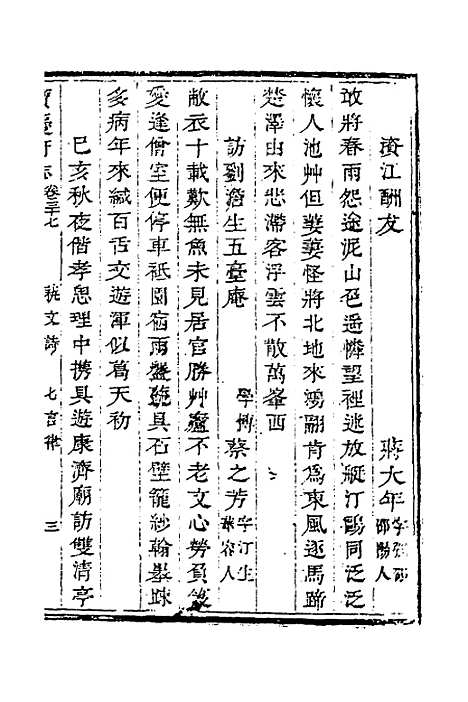 資江酬友 蔣大年 字 邵陽人
敢將春雨怨途泥山色遥憐望裡迷放艇汀鷗同泛泛
懷人池艸但萋萋怪將北地來鴻翩肯爲東風逐馬蹄
楚澤由來悲滯客浮雲不散萬峯西
訪劉 生五臺庵 學博蔡之芳 字汀生 華容人
敝衣十載歎無魚未見居官勝艸廬不老文心勞負笈
愛逢僧室便停車祇園宿雨盤蔬具石壁籠紗翰墨踈
多病年來緘百舌交遊渾似葛天初
巳亥秋夜偕孝思理中携具遊康濟廟訪雙清亭
卷三十七 藝文詩 七言律 三